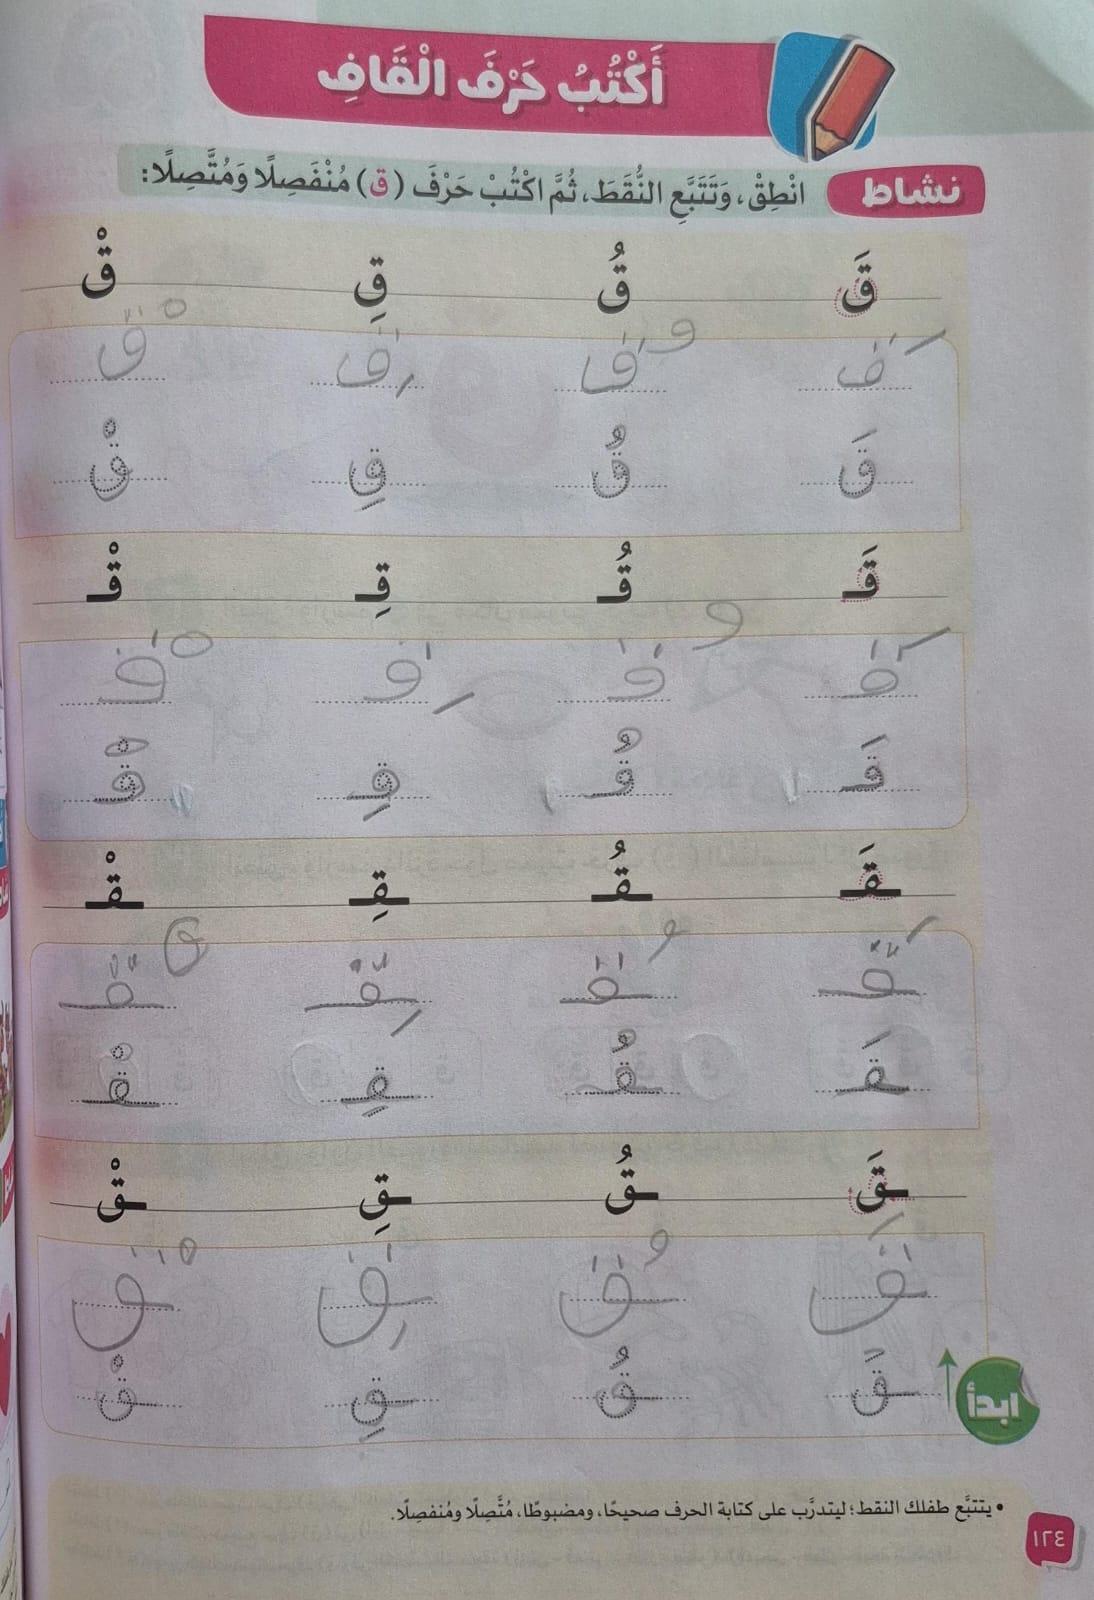 أَكْتُبُ حَرْفَ الْقَافِ
نشاط انْطِقْ، وَتَتَبَّعِ النُّقَطَ، ثُمَّ اكْتُبْ حَرْفَ (ق) مُنْفَصِلًا وَمُتَّصِلًا:
قَ قُ قِ قْ
قَ قُ قِ قْ
قَ قُ قِ قْ
قَـ قُـ قِـ قْـ
قَـ قُـ قِـ قْـ
قَـ قُـ قِـ قْـ
ـقَـ ـقُـ ـقِـ ـقْـ
ـقَـ ـقُـ ـقِـ ـقْـ
ـقَـ ـقُـ ـقِـ ـقْـ
ـقَ ـقُ ـقِ ـقْ
ـقَ ـقُ ـقِ ـقْ
ـقَ ـقُ ـقِ ـقْ
ابدأ
• يتتبَّع طفلك النقط؛ ليتدرَّب على كتابة الحرف صحيحًا، ومضبوطًا، مُتَّصِلًا ومُنفصِلًا.
١٢٤